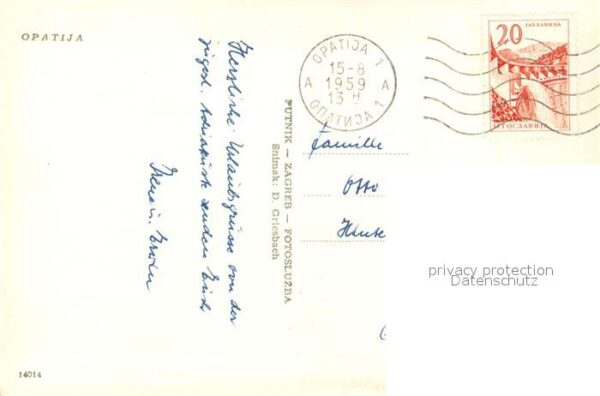 OPATIJA
Herzliche Urlaubsgrüsse von der
jugosl. Adriaküste senden Euch
OPATIJA 1
A 15-8 A
1959
ОПАТИЈА 1
20
ЈАБЛАНИЦА
ЈУГОСЛАВИЈА
PUTNIK — ZAGREB — FOTOSLUŽBA
Snimak: D. Griesbach
Familie
Otto
privacy protection
Datenschutz
14014